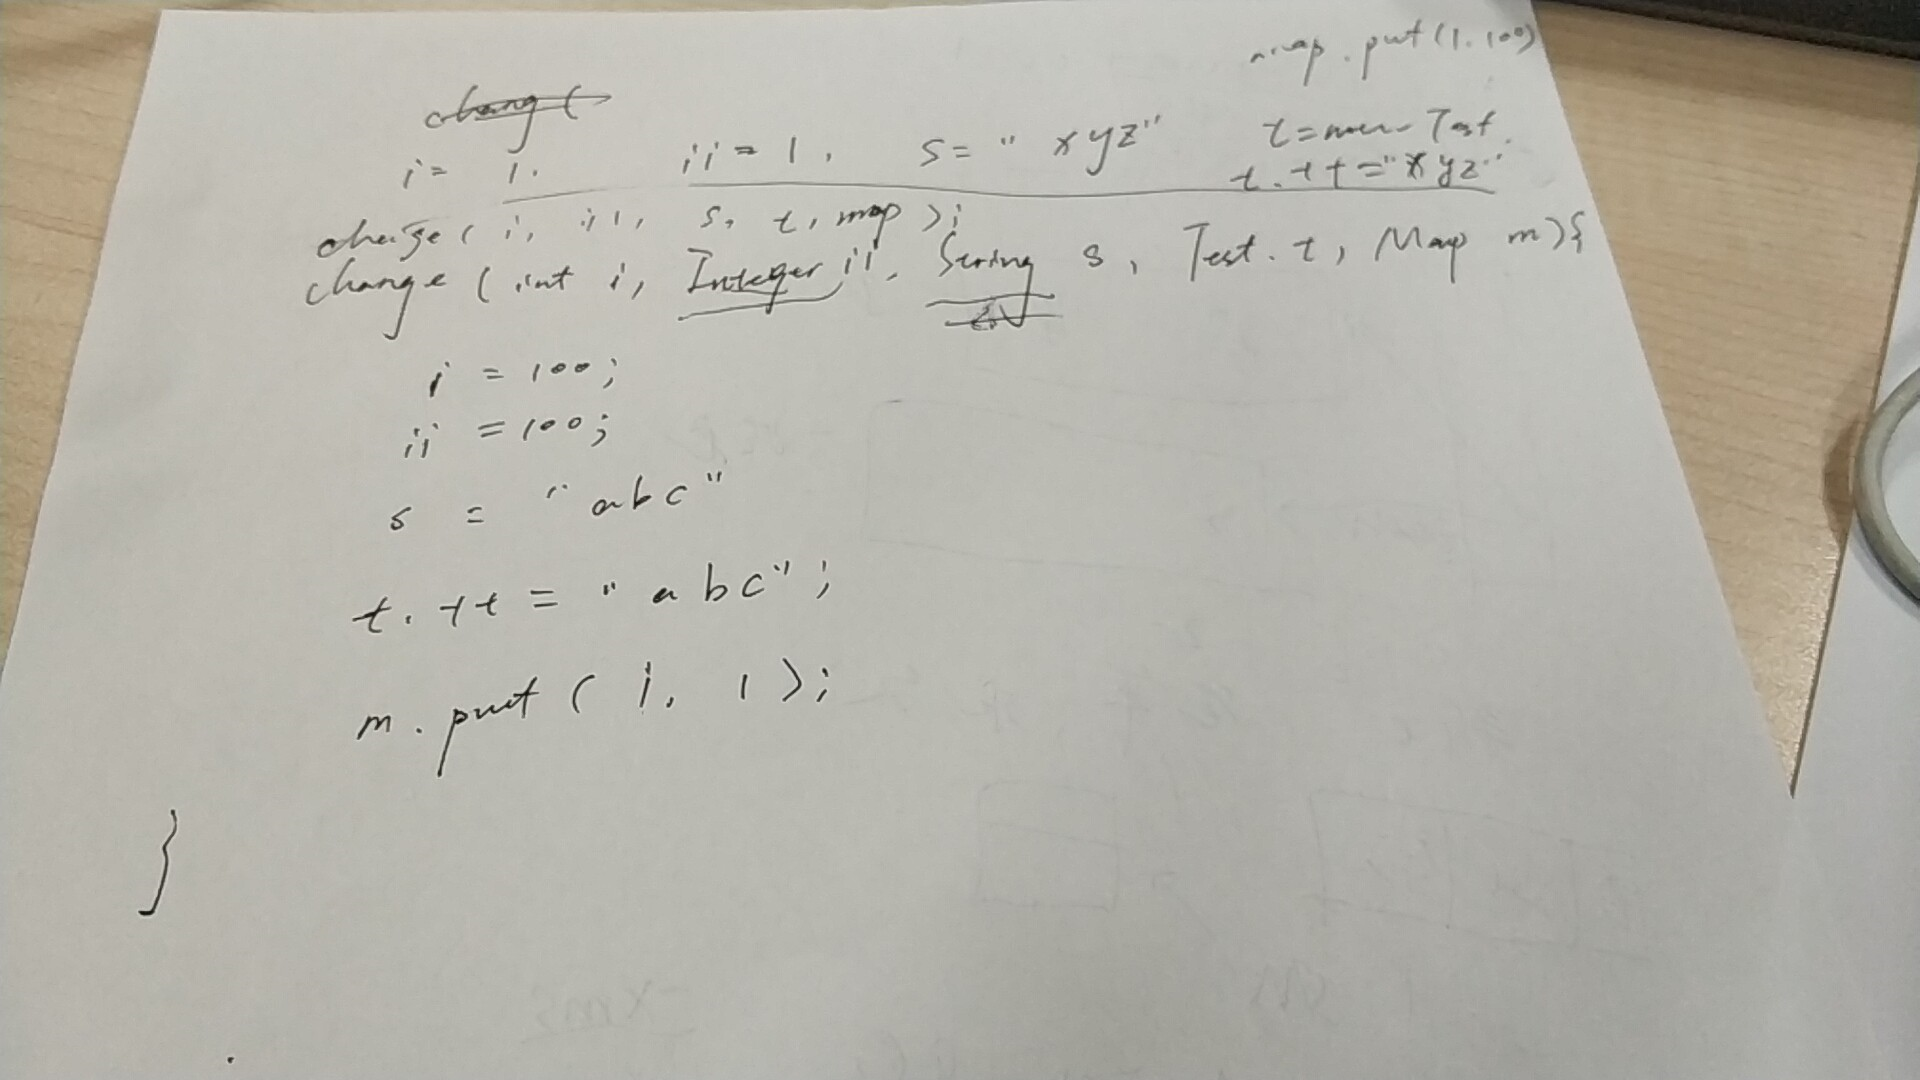 map.put(1.100)
chang(
i= 1. ii=1, s="xyz" t=new Test.
t.tt="xyz"
change(i, ii, s, t, map);
change(int i, Integer ii, String s, Test.t, Map m){
i = 100;
ii = 100;
s = "abc"
t.tt = "abc";
m.put(i, 1);
}